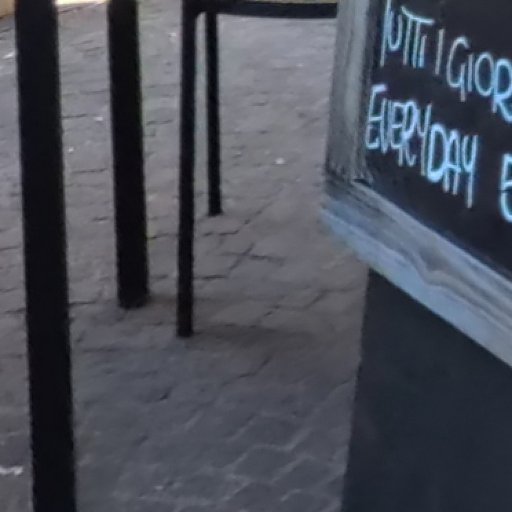 TUTTI I GIOR
EVERYDAY 5